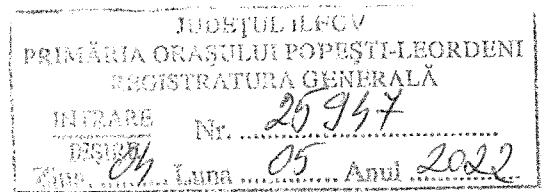 JUDEŢUL ILFOV
PRIMĂRIA ORAŞULUI POPEŞTI-LEORDENI
REGISTRATURA GENERALĂ
INTRARE
IEŞIRE Nr. 25947
Ziua 04 Luna 05 Anul 2022